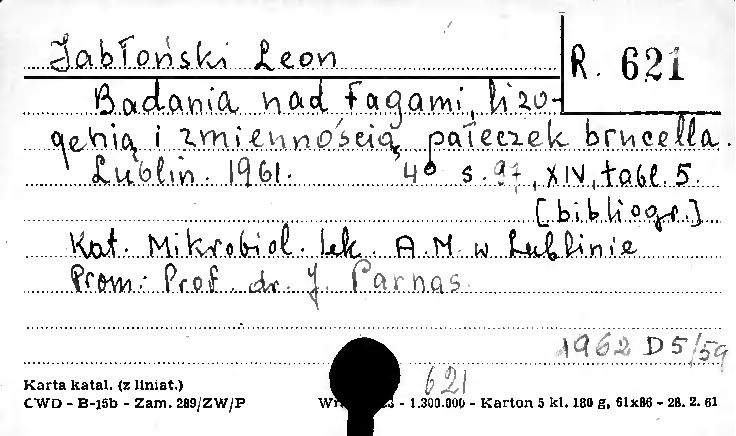 Jabłoński Leon
R. 621
Badania nad fagami, lizo-
genią i zmiennością pałeczek brucella.
Lublin. 1961. 4° s. 97, XIV, tabl. 5.
[bibliogr.]
Kat. Mikrobiol. Lek. A.M. w Lublinie
Prom: Prof. dr. J. Parnas
1962 D 5/59
621
Karta katal. (z liniat.)
CWD - B-15b - Zam. 289/ZW/P - 1.300.000 - Karton 5 kl. 180 g, 61x86 - 28. 2. 61